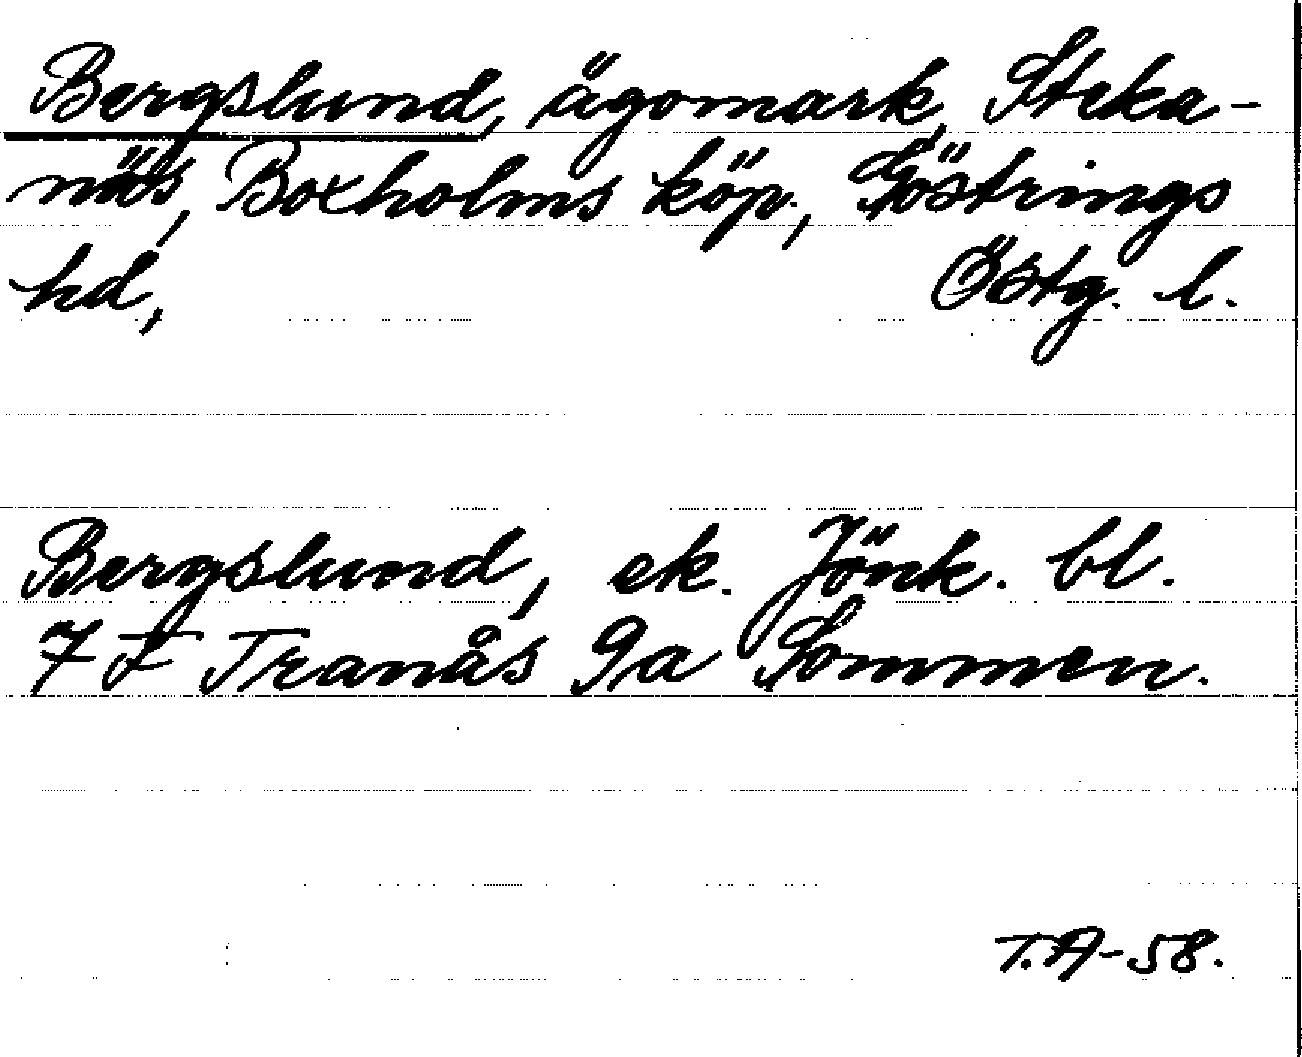 Bergslund, ägomark, Steka-
näs, Boxholms köp., Göstrings
hd, Östg. l.
Bergslund, ek. Jönk. bl.
7 F Tranås 9a Sommen.
T.A-58.